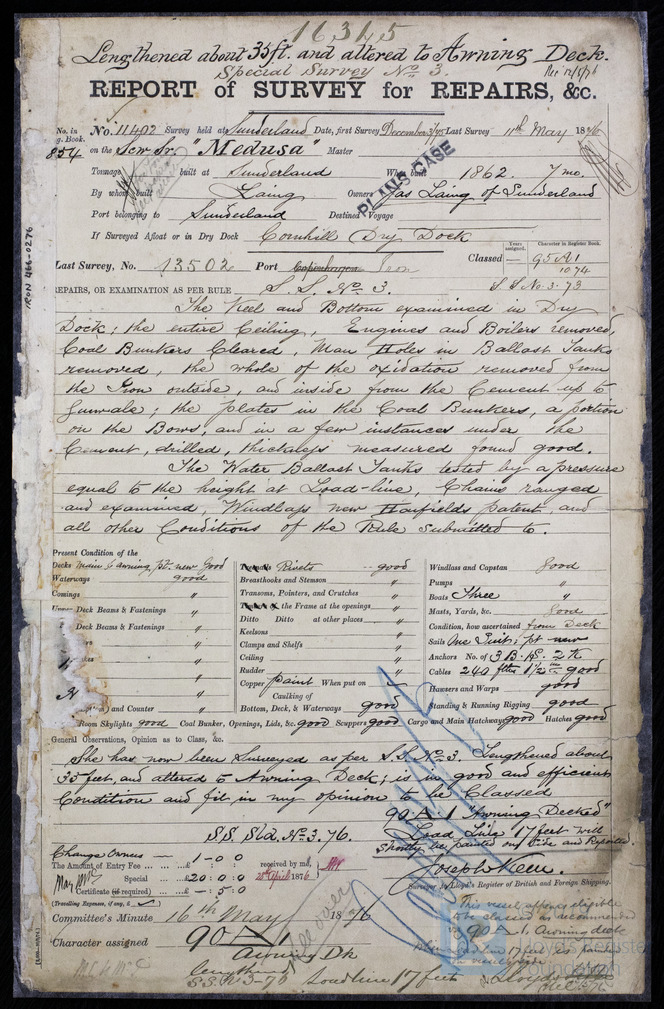 16315
Lengthened about 35ft. and altered to Awning Deck.
Special Survey No. 3.
Rec 12/5/76
REPORT of SURVEY for REPAIRS, &c.
No. in
g. Book.
854
No. 11402 Survey held at Sunderland Date, first Survey December 3/75 Last Survey 11th May 1876
on the Scw Sr. "Medusa" Master
PLANS CASE
Tonnage built at Sunderland When built 1862. 7 mo.
By whom built Laing Owners Jas Laing of Sunderland
Port belonging to Sunderland Destined Voyage
If Surveyed Afloat or in Dry Dock Cornhill Dry Dock
Years assigned. Character in Register Book.
Last Survey, No. 13502 Port Copenhagen Iron Classed — 90 A 1
10 74
REPAIRS, OR EXAMINATION AS PER RULE S. S. No. 3. S S No. 3-73
The Keel and Bottom examined in Dry
Dock; the entire Ceiling, Engines and Boilers removed,
Coal Bunkers Cleared, Man Holes in Ballast Tanks
removed, the whole of the oxidation removed from
the Iron outside, and inside from the Cement up to
Gunwale; the plates in the Coal Bunkers, a portion
on the Bows, and in a few instances under the
Cement, drilled, thickness measured found good.
The Water Ballast Tanks tested by a pressure
equal to the height at Load-line, Chains ranged
and examined, Windlass new Harfields patent, and
all other Conditions of the Rule submitted to.
Present Condition of the
Decks main & awning, pt. new Good
Waterways good
Comings "
Upper Deck Beams & Fastenings "
Deck Beams & Fastenings "
and Counter "
Room Skylights good
Rivets good
Breasthooks and Stemson "
Transoms, Pointers, and Crutches "
the Frame at the openings "
Ditto Ditto at other places "
Keelsons "
Clamps and Shelfs "
Ceiling "
Rudder "
Copper paint When put on
Caulking of
Bottom, Deck, & Waterways good
Coal Bunker, Openings, Lids, &c. good Scuppers good Cargo and Main Hatchways good Hatches good
Windlass and Capstan Good
Pumps "
Boats Three "
Masts, Yards, &c. Good
Condition, how ascertained from Deck
Sails One Suit; pt new
Anchors No. of 3 B. 1 S. 2 K
Cables 240 fthm 1 1/2 in good
Hawsers and Warps good
Standing & Running Rigging good
General Observations, Opinion as to Class, &c.
She has now been Surveyed as per S.S. No. 3. Lengthened about
35 feet, and altered to Awning Deck; is in good and efficient
Condition and fit in my opinion to be Classed
90 A 1 "Awning Decked"
S.S. Sld. No. 3. 76.
Load Line 17 feet will
shortly be painted on Side and Reported.
Change Owners — 1-0 0
The Amount of Entry Fee ... £ : : received by me,
Special ... £20 : 0 : 0 28 April 1876
Certificate (if required) £ — : 5 : 0
(Travelling Expenses, if any, £ )
Joseph Keen.
Surveyor to Lloyd's Register of British and Foreign Shipping.
Committee's Minute 16th May 1876
Character assigned 90 A 1
Awning Dk
lengthened
S.S. No 3-76 Loadline 17 feet
This vessel appears eligible
to be classed as recommended
90 A 1. Awning deck
Lloyd's Register
Foundation
IRON 466-0276